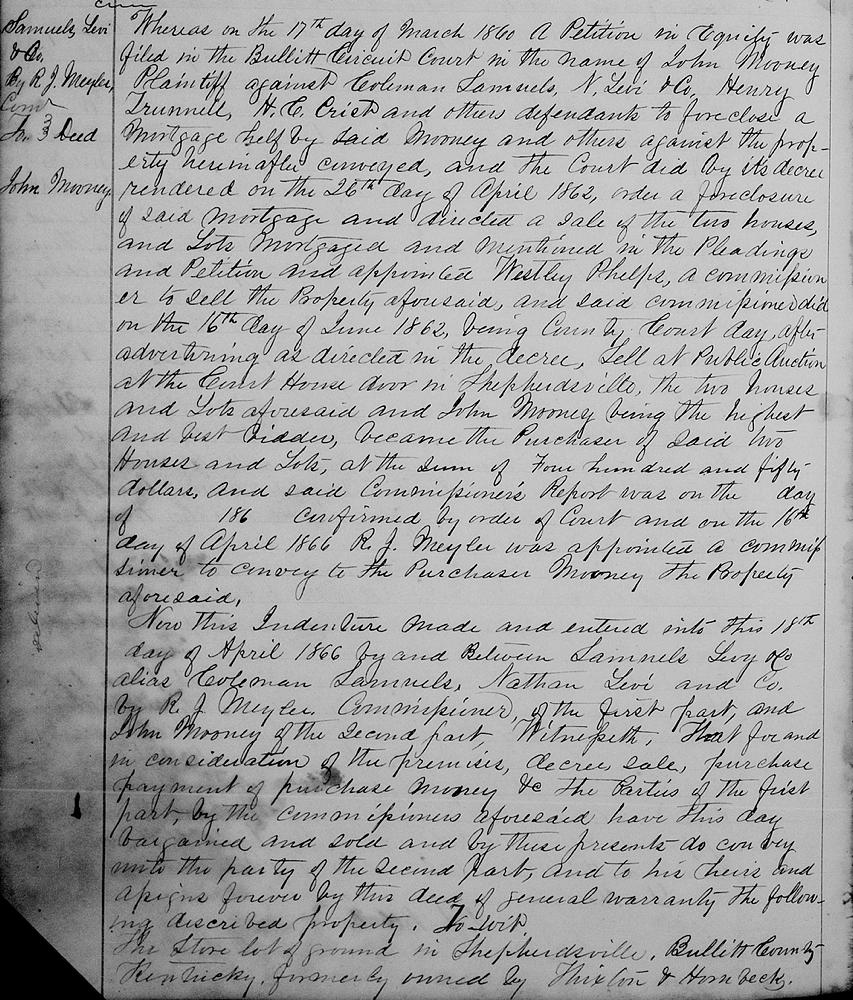 Samuels, Levi
& Co.
By R. J. Meyler,
Comr
To. 3 3 Deed
John Mooney.
Whereas on the 17th day of March 1860 A Petition in Equity was
filed in the Bullitt Circuit Court in the name of John Mooney
Plaintiff against Coleman Samuels, N. Levi & Co. Henry
Trunnell, H. C. Crist and others defendants to foreclose a
Mortgage held by said Mooney and others against the prop-
erty hereinafter conveyed, and the Court did by its decree
rendered on the 26th day of April 1862, order a foreclosure
of said mortgage and directed a sale of the two houses,
and Lots Mortgaged and mentioned in the Pleadings
and Petition and appointed Westley Phelps, a commission
er to sell the Property aforesaid, and said commissioner did
on the 16th day of June 1862, being County Court day, after
advertising as directed in the decree, Sell at Public Auction
at the Court House door in Shepherdsville, the two houses
and Lots aforesaid and John Mooney being the highest
and best bidder, became the Purchaser of said two
Houses and Lots, at the sum of Four hundred and fifty
dollars, and said Commissioner's Report was on the day
of 186 confirmed by order of Court and on the 16th
day of April 1866 R. J. Meyler was appointed a commis
sioner to convey to the Purchaser Mooney the Property
aforesaid,
Now this Indenture made and entered into this 18th
day of April 1866 by and Between Samuels Levy & Co
alias Coleman Samuels, Nathan Levi and Co.
by R. J. Meyler. Commissioner, of the first part, and
John Mooney of the second part, Witnesseth, That for and
in consideration of the premises, decree, sale, purchase
payment of purchase money &c the Parties of the first
part, by the commissioners aforesaid have this day
bargained and sold and by these presents do convey
unto the party of the second Part, and to his heirs and
assigns forever by this deed of general warranty the follow-
ing discribed property. To-wit,
The Store lot of ground in Shepherdsville, Bullitt County
Kentucky, formerly owned by Thixton & Hornbeck.